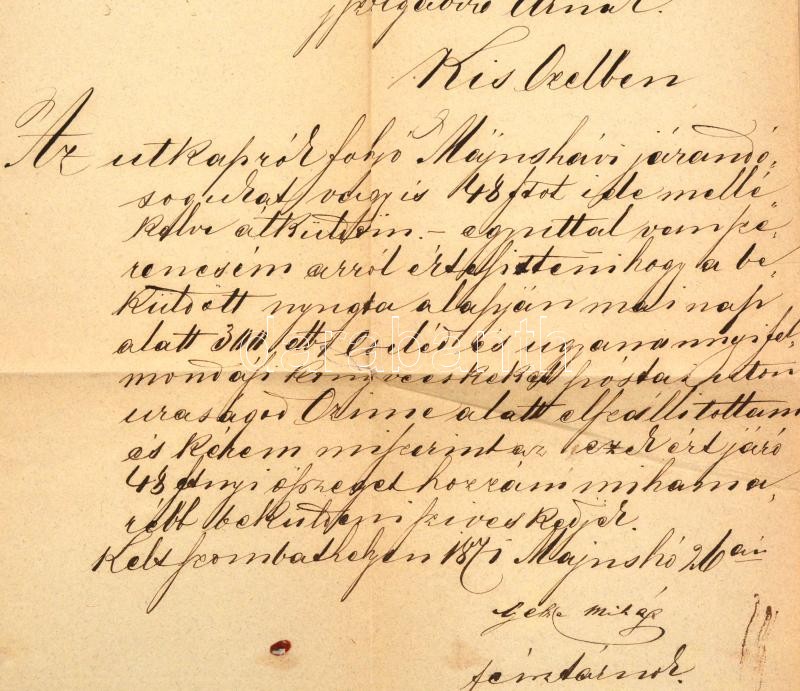 szolgabíró Urnak.
Kis Czelben
Az utkaprók folyó Májushávi járandó-
sagukat vagyis 48 ftot ide mellé-
kelve átküldöm. – egyuttal van sze-
rencsém arról értesitteni hogy a be-
küldött nyugta alapján mai nap
alatt 300 Cseléd és ugyanannyi fel-
mondási könyvecskéket posta uton
uraságod Czime alatt elszállitottam
és kérem miszerint az ezekért járó
48 ftnyi összeget hozzám mihama-
rébb beküldeni sziveskedjék
Kelt Szombathelyen 1871 Májushó 26 án
Mihály